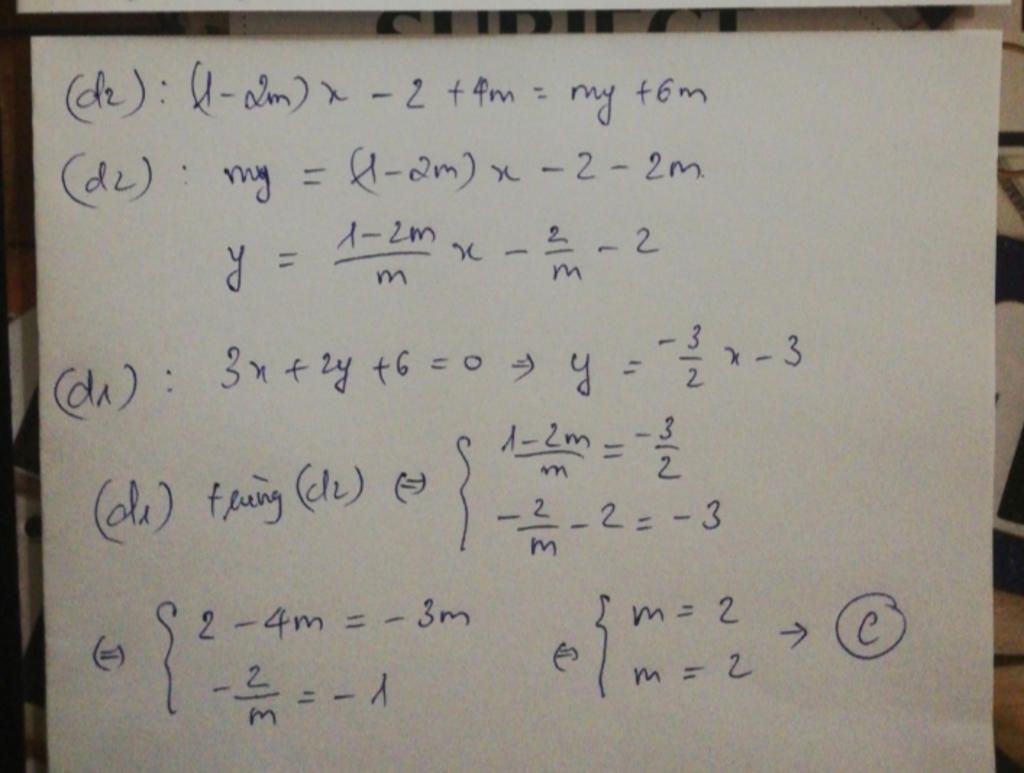 SUBJECT
(d2): (1-2m)x - 2 + 4m = my + 6m
(d2): my = (1-2m)x - 2 - 2m.
y = \frac{1-2m}{m} x - \frac{2}{m} - 2
(d1): 3x + 2y + 6 = 0 ⇒ y = \frac{-3}{2} x - 3
(d1) trùng (d2) ⇔ { \frac{1-2m}{m} = \frac{-3}{2}
-\frac{2}{m} - 2 = -3
⇔ { 2 - 4m = -3m ⇔ { m = 2 → C
-\frac{2}{m} = -1 m = 2